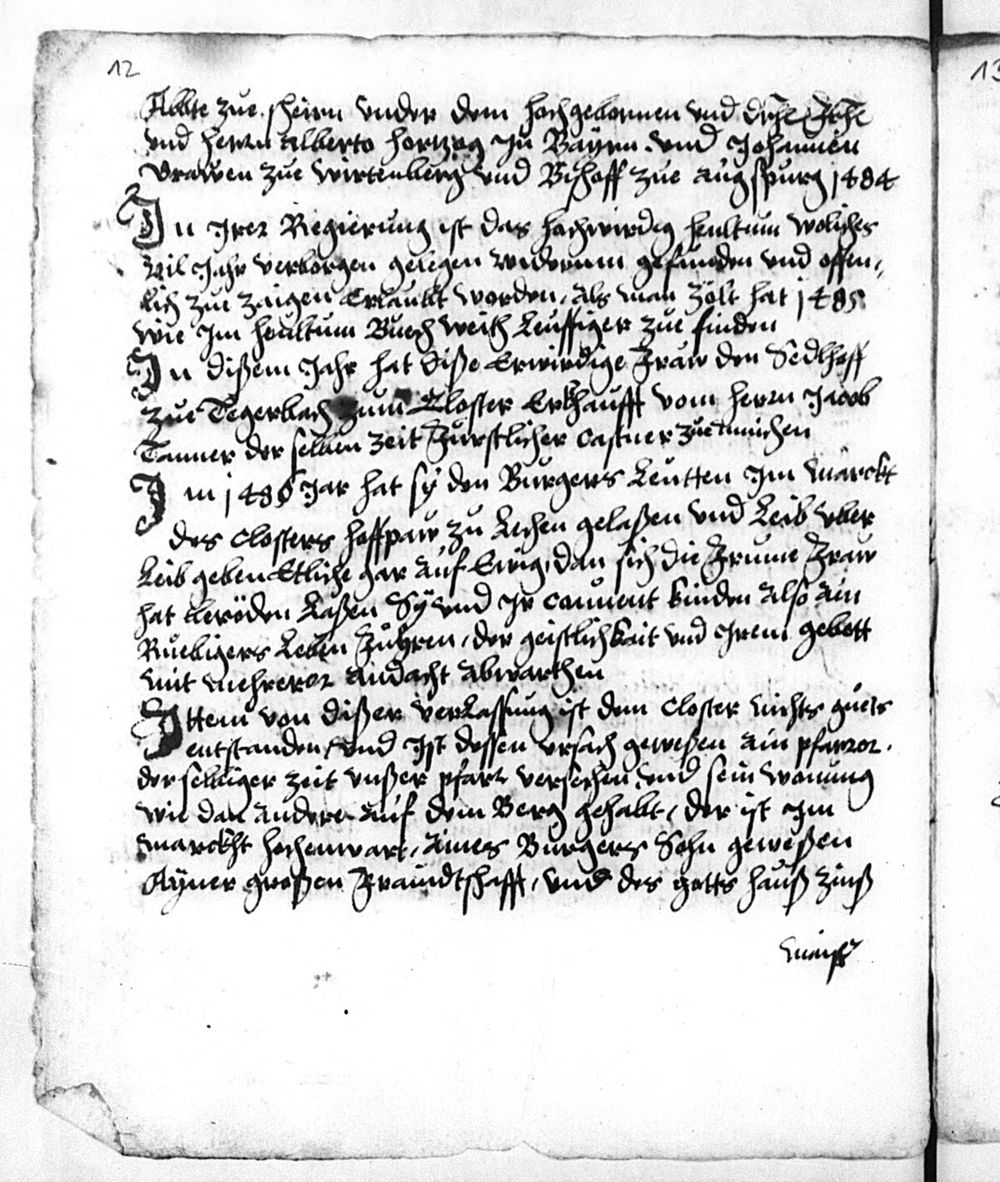 12
Abbte zue Sheirn vnder dem hochgebornnen vnd
vnd herrn Alberto hertzog Jn Bayrn vnd Johannen
Grawen zue Wirtenberg vnd Bischoff zue Augspurg 1484
Jn Jrer Regierung ist das hochwirdig heultum wölches
vil Jahr verborgen gelegen widerumn gefunden vnd offen-
lich zue zaigen Erlaubt worden, Als man Zölt hat 1485
wie Jm heultum Buech weith Leuffiger zue finden
Jn dißem Jahr hat dise Erwirdige Fraw den Sedlhoff
zue Tegerbach zum Closter Erkhaufft vom herrn Jacob
Tanner der selben Zeit Fürstlicher Castner zue münchen
Jm 148 Jar hat sy den Burgers Leutten Jm Marckt
des Closters hoffpaw zu Lechen gelaßen vnd Leib vber
Leib geben Etliche gar Auf Ewig, dan sich die Frume Fraw
hat beröden Laßen Sy vnd Jr Conuent künden Also Ain
Ruebigers Leben Führen, der geistlichkait vnd Jrem gebett
mit mehrerer Andacht Abwarthen
Jttem von dißer verLassung ist dem Closter nichts guets
entstanden, vnd Jst dessen vrsach geweßen Ain pfarrer,
derselbiger Zeit vnßer pfarr versechen vnd sein wonung
wie dan Andere Auf dem Berg gehabt, der ist Jm
Marckht hochenwart, Aines Burgers Sohn geweßen
Ayner großen Fraindtschafft, vnd des gotts hauß zinß